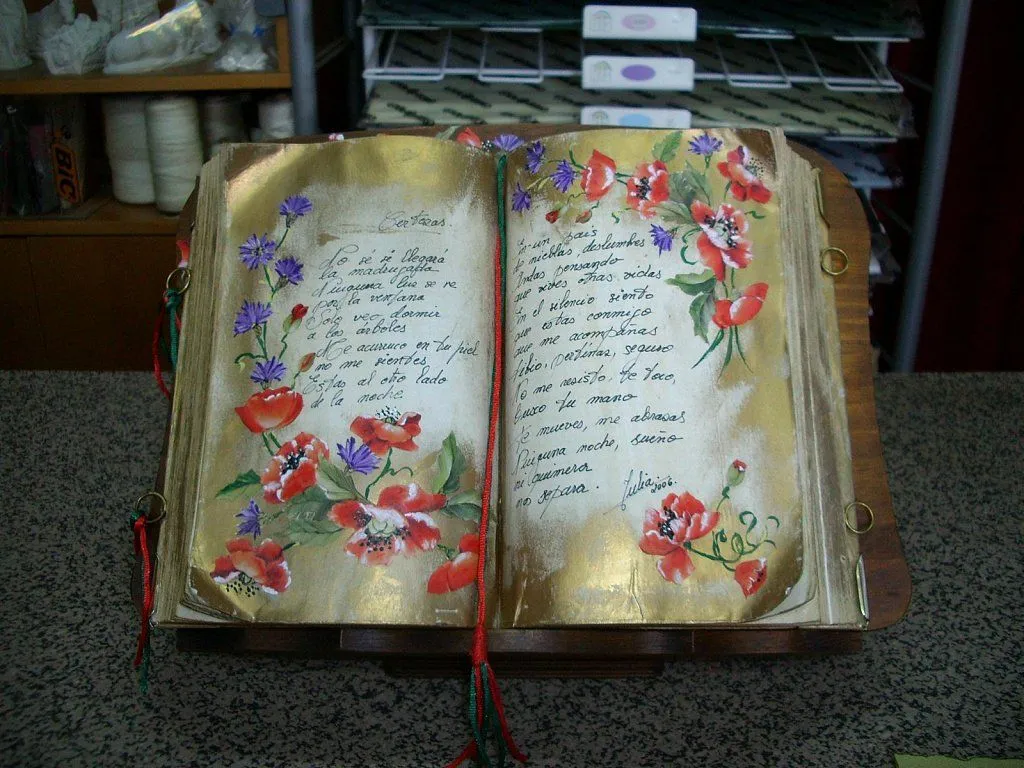 Certezas.
No se si llegará
la madrugada
Ninguna luz se ve
por la ventana
Solo veo dormir
a los árboles
Me acurruco en tu piel
no me sientes
Estas al otro lado
de la noche
En un pais
de nieblas, deslumbres
Andas pensando
que vives otras vidas
En el silencio siento
que estas conmigo
que me acompañas
tibio, pertinaz, seguro
No me resisto, te toco,
Busco tu mano
Te mueves, me abrazas
Ninguna noche, sueño
ni quimera
nos separa.
Julia 2006.
BIC